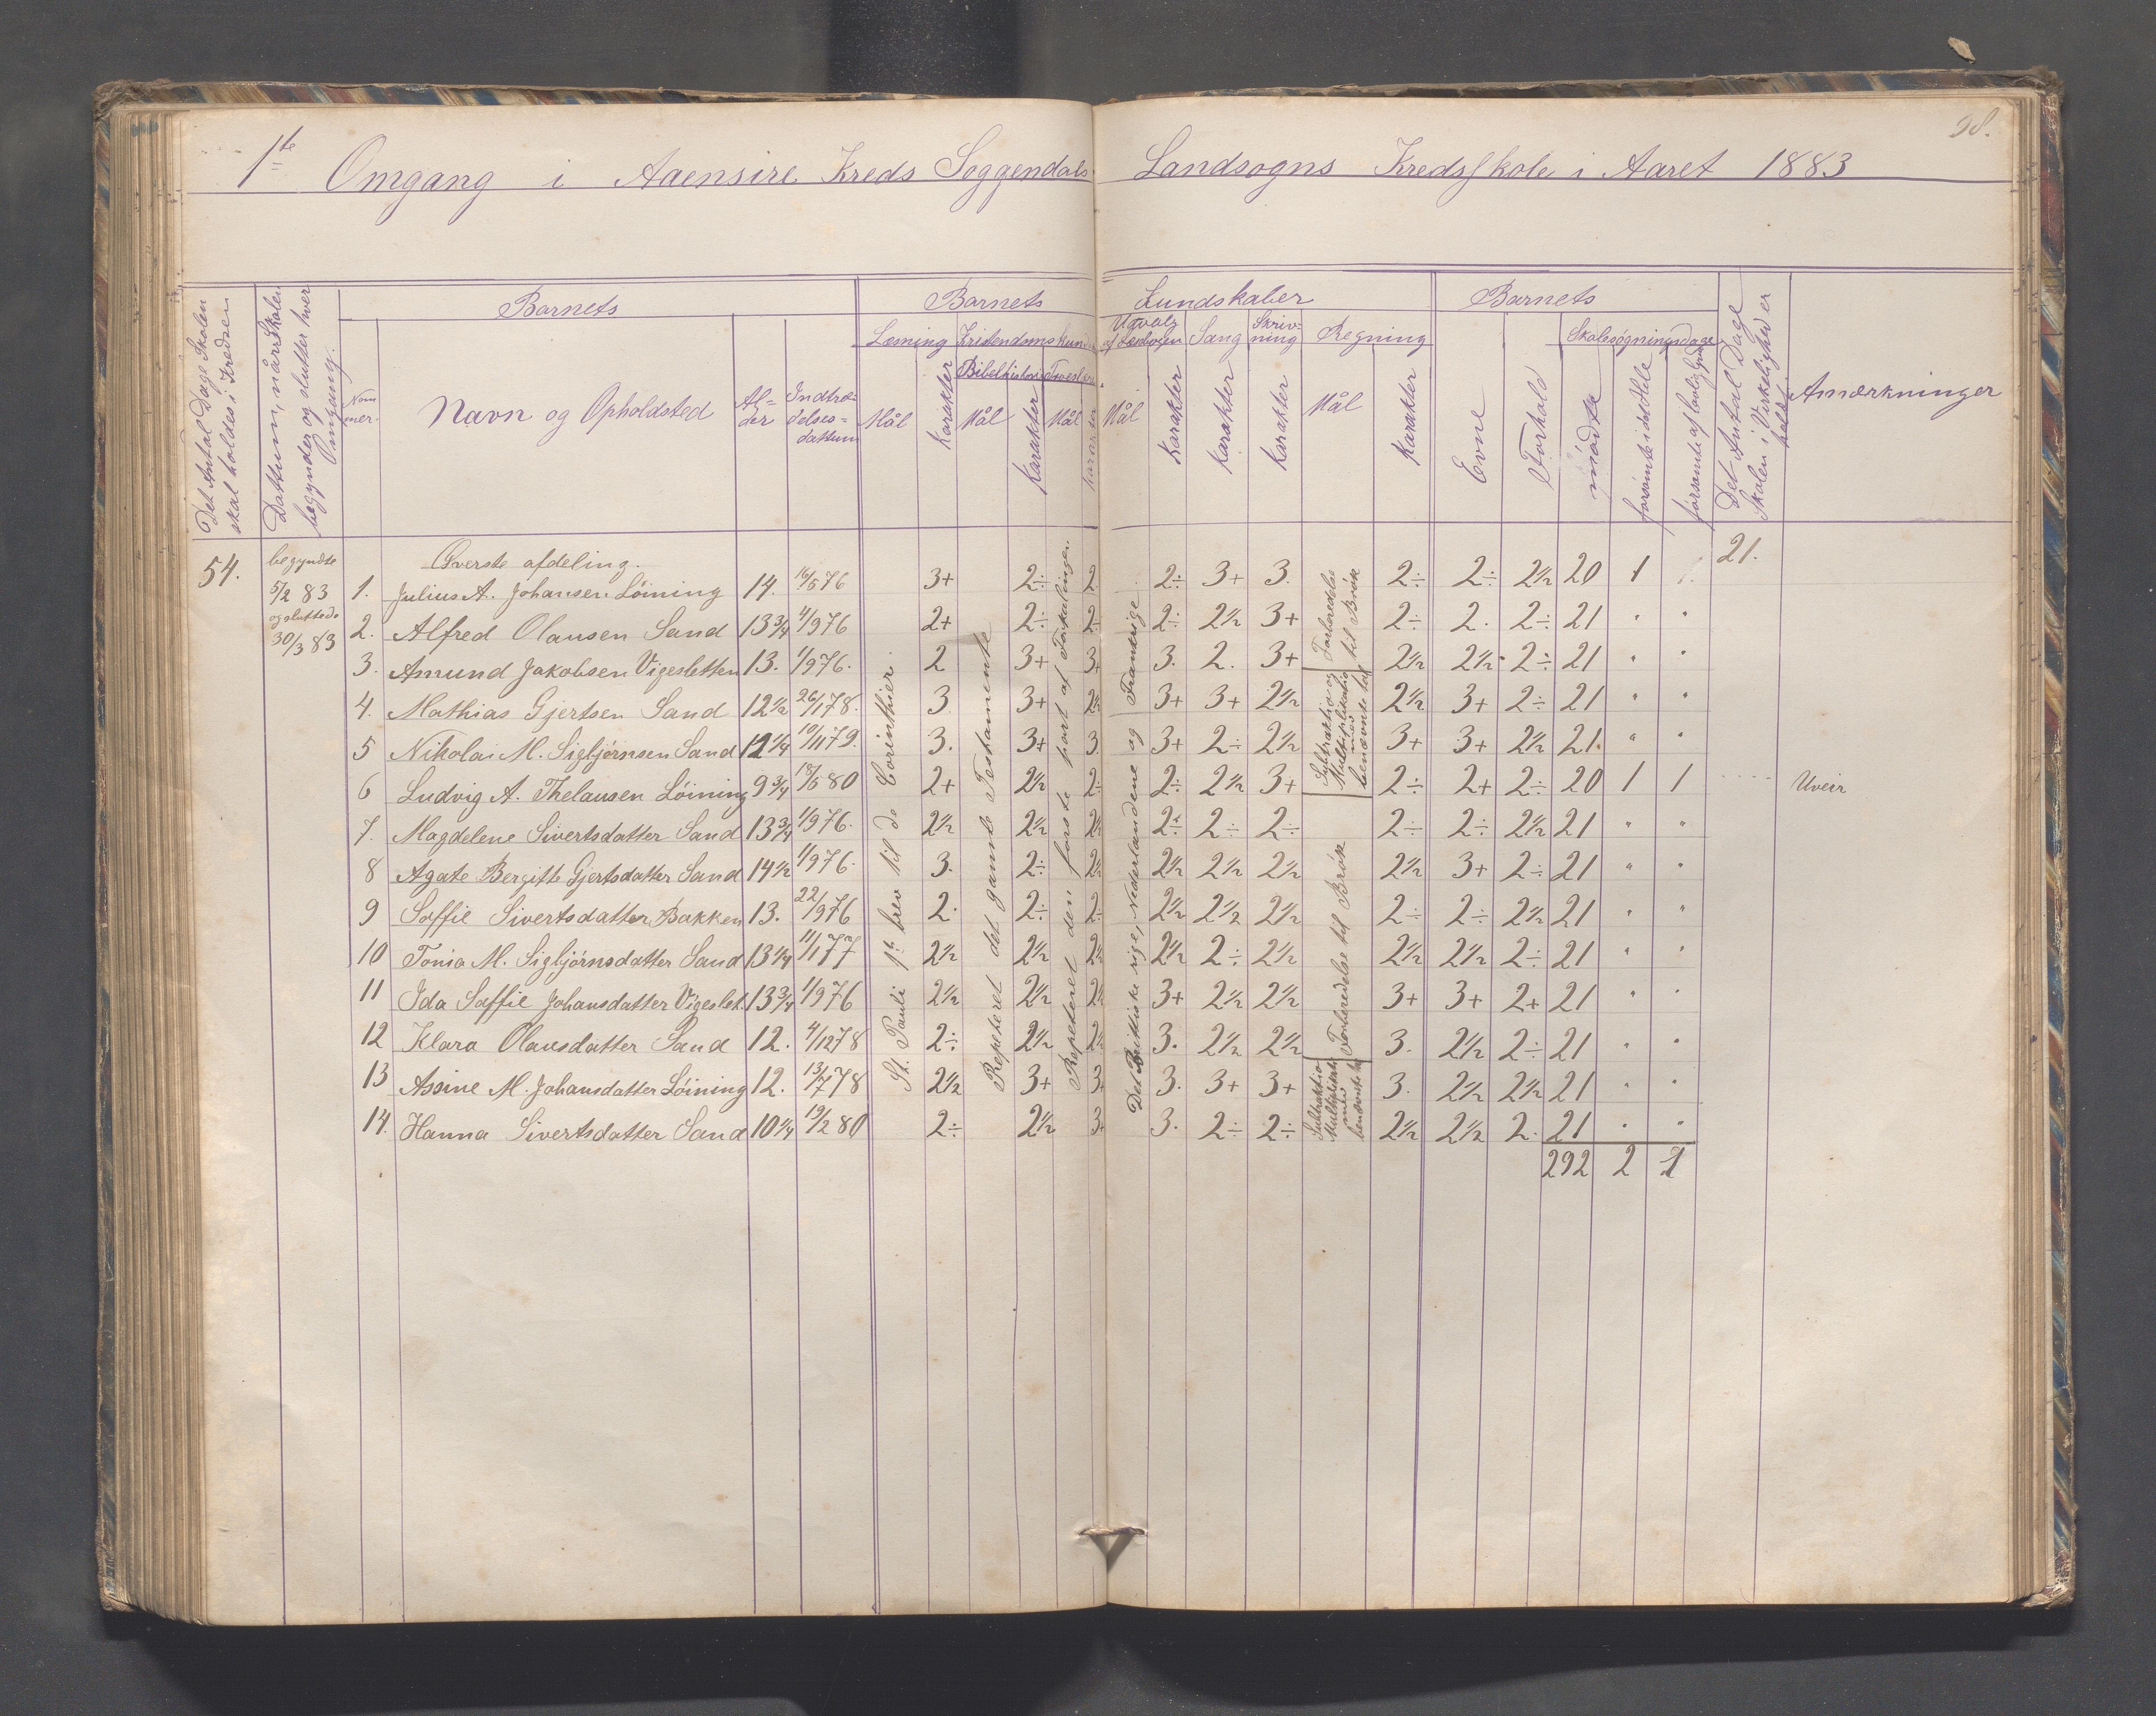 98.
1ste Omgang i Aaensire Kreds Soggendals Landsogns Kredsskole i Aaret 1883
Det Antal Dage Skolen skal holdes i Kredsen
Dattum, når Skolen begynder og slutter hver Omgang.
Barnets
Nom mer.
Navn og Opholdsted
Al= der
Indtræ= delses= dattum
Barnets Kundskaber
Læsning
Mål
Karakter
Kristendomskund
Bibelhistorie
Mål
Karakter
Mål
Udvalg af Læsebogen
Mål
Karakter
Sang
Karakter
Skriv= ning
Karakter
Regning
Mål
Karakter
Barnets
Evne
Forhold
Skolesøgningsdage
mødte
forsømte i det Hele
forsømte af lovlig Grund
Det Antal Dage Skolen i Virkeligheden er holdt
Anmærkninger
54.
begyndte 5/2 83 og sluttede 30/3 83
Øverste afdeling.
21.
1. Julius A. Johansen Löining 14. 16/5 76 3+ 2÷ 2 2÷ 3+ 3. 2÷ 2÷ 2½ 20 1 1.
2. Alfred Olausen Sand 13¾ 11/9 76 2+ 2÷ 2÷ 2÷ 2½ 3+ 2÷ 2. 2÷ 21 " "
3. Amund Jakobsen Vigesletten 13. 1/9 76. 2 3+ 3+ 3. 2. 3+ 2½ 2½ 2÷ 21 " "
4. Mathias Gjertsen Sand 12½ 26/1 78. 3. 3+ 2½ 3+ 3+ 2½ 2½ 3+ 2÷ 21 " "
5 Nikolai M. Sigbjörnsen Sand 12¼ 10/11 79. 3. 3+ 3. 3+ 2÷ 2½ 3+ 3+ 2½ 21. " "
6 Ludvig A. Thelausen Löining 9¾ 18/5 80 2+ 2½ 2÷ 2÷ 2½ 3+ 2÷ 2+ 2÷ 20 1 1 Uveir
7. Magdelene Sivertsdatter Sand 13¾ 11/9 76. 2½ 2½ 2½ 2÷ 2÷ 2÷ 2÷ 2÷ 2½ 21 " "
8 Agate Bergitte Gjertsdatter Sand 14½ 11/9 76. 3. 2÷ 2½ 2½ 2½ 2½ 2½ 3+ 2÷ 21 " "
9 Soffie Sivertsdatter Bakken 13. 22/9 76 2. 2÷ 2÷ 2½ 2½ 2½ 2÷ 2÷ 2½ 21 " "
10 Tonia M. Sigbjörnsdatter Sand 13¼ 11/1 77 2½ 2½ 2½ 2½ 2÷ 2½ 2½ 2½ 2÷ 21 " "
11 Ida Soffie Johansdatter Vigeslet. 13¾ 11/9 76 2½ 2½ 2½ 3+ 2½ 2½ 3+ 3+ 2+ 21 " "
12 Klara Olausdatter Sand 12. 4/12 78 2÷ 2½ 2½ 3. 2½ 2½ 3. 2½ 2÷ 21 " "
13 Assine M. Johansdatter Löining 12. 13/7 78 2½ 3+ 3+ 3. 3+ 3+ 3. 2½ 2½ 21 " "
14. Hanna Sivertsdatter Sand 10¼ 19/2 80 2÷ 2½ 3+ 3. 2÷ 2÷ 2½ 2½ 2. 21 " "
292 2 1
St. Pauli 1ste brev til de Corinthier.
Repeteret det gamle Testamente
Repeteret den første part af Forklaringen.
Det Brittiske rige, Nederlandene og Frankrige
Forberedelse til Brøk
Subtraktion og Multiplikation med benævnte tal
Forberedelse til Brøk
Subtraktion Multiplikation med benævnte tal